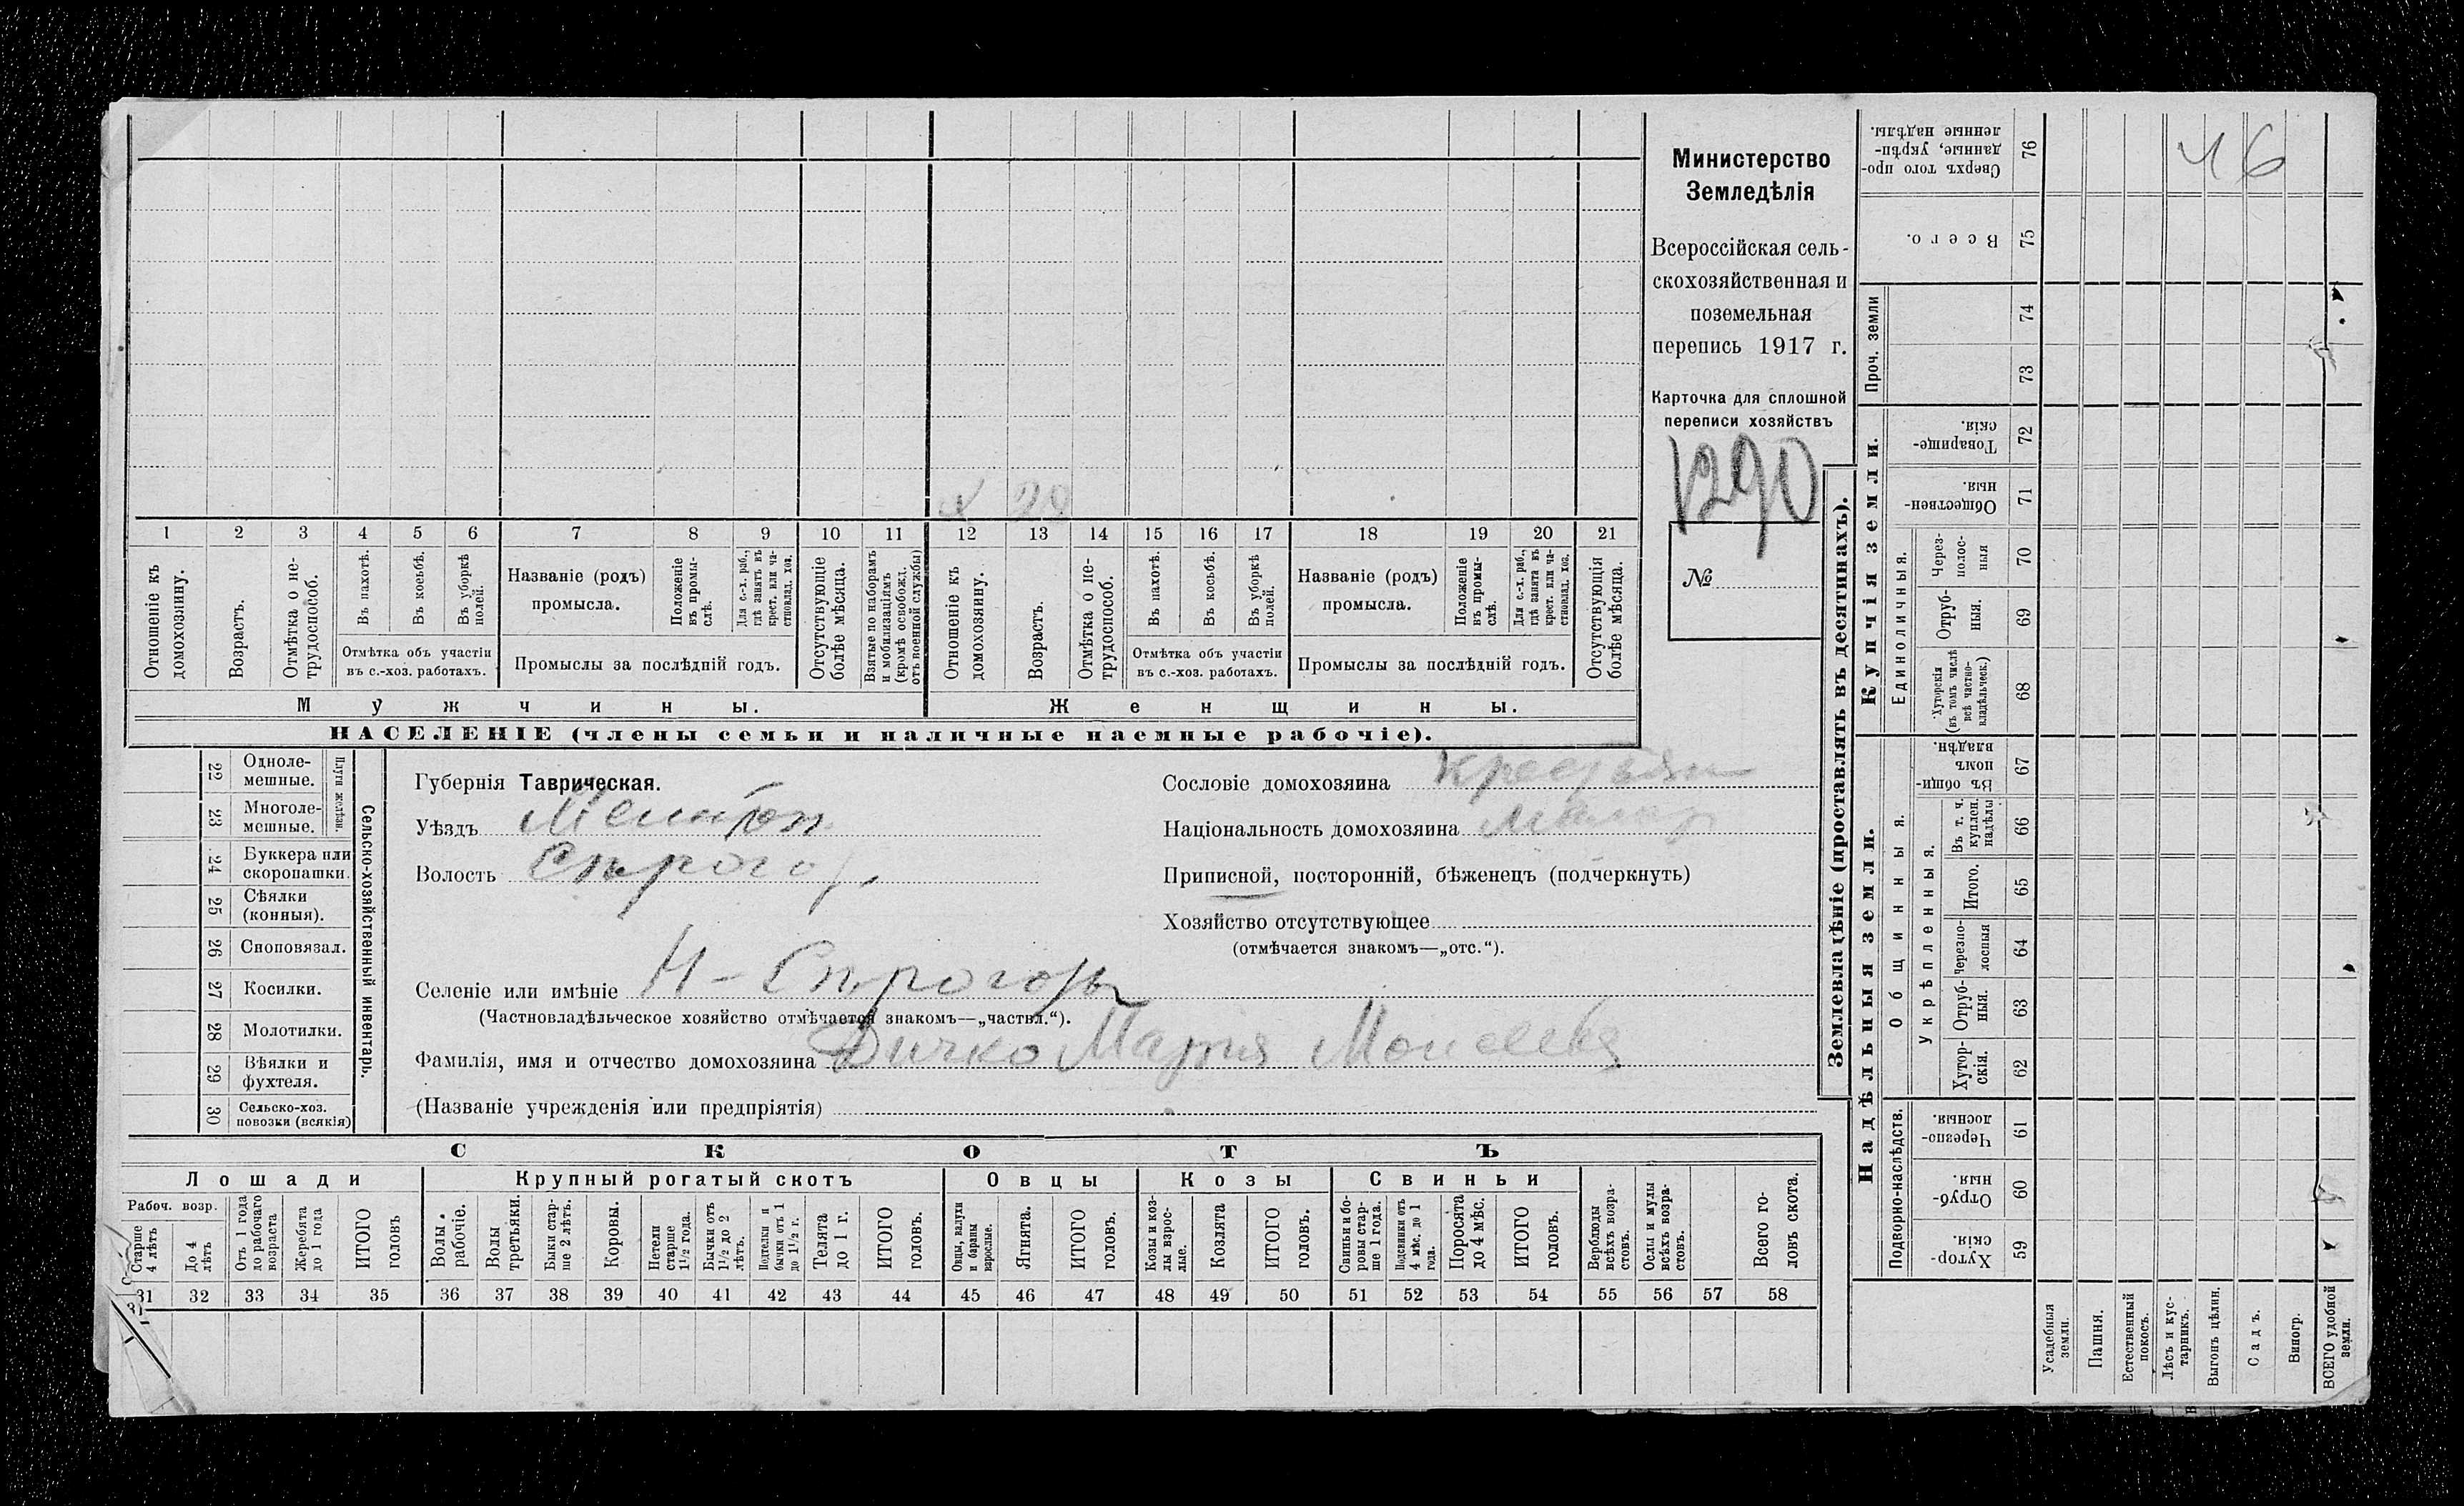 Министерство
Земледѣлія
Всероссійская сель-
скохозяйственная и
поземельная
перепись 1917 г.
Карточка для сплошной
переписи хозяйствъ
1290
№
х 29
1 2 3 4 5 6 7 8 9 10 11 12 13 14 15 16 17 18 19 20 21
Отношеніе къ домохозяину.
Возрастъ.
Отмѣтка о не-трудоспособ.
Въ пахотѣ.
Въ косьбѣ.
Въ уборкѣ полей.
Отмѣтка объ участіи
въ с.-хоз. работахъ.
Названіе (родъ)
промысла.
Положеніе въ промы-слѣ.
Для с.-х. раб., гдѣ занятъ въ крест. или ча-стновлад. хоз.
Промыслы за послѣдній годъ.
Отсутствующіе болѣе мѣсяца.
Взятые по наборамъ и мобилизаціямъ (кромѣ освобожд. отъ военной службы)
Отношеніе къ домохозяину.
Возрастъ.
Отмѣтка о не-трудоспособ.
Въ пахотѣ.
Въ косьбѣ.
Въ уборкѣ полей.
Отмѣтка объ участіи
въ с.-хоз. работахъ.
Названіе (родъ)
промысла.
Положеніе въ промы-слѣ.
Для с.-х. раб., гдѣ занята въ крест. или ча-стновлад. хоз.
Промыслы за послѣдній годъ.
Отсутствующія болѣе мѣсяца.
Мужчины.
Женщины.
НАСЕЛЕНІЕ (члены семьи и наличные наемные рабочіе).
Сельско-хозяйственный инвентарь.
Плуги желѣзн.
22 Одноле-мешные.
23 Многоле-мешные.
24 Буккера или скоропашки.
25 Сѣялки (конныя).
26 Сноповязал.
27 Косилки.
28 Молотилки.
29 Вѣялки и фухтеля.
30 Сельско-хоз. повозки (всякія)
Губернія Таврическая.
Уѣздъ Мелитоп
Волость
Сословіе домохозяина крестьян
Національность домохозяина малор
Приписной, посторонній, бѣженецъ (подчеркнуть)
Хозяйство отсутствующее
(отмѣчается знакомъ—„отс.“).
Селеніе или имѣніе Н-
(Частновладѣльческое хозяйство отмѣчается знакомъ—„частвл.“).
Фамилія, имя и отчество домохозяина Дичко Мария Моисеева
(Названіе учрежденія или предпріятія)
СКОТЪ
Лошади
Крупный рогатый скотъ
Овцы
Козы
Свиньи
Рабоч. возр.
Старше 4 лѣтъ
До 4 лѣтъ
Отъ 1 года до рабочаго возраста
Жеребята до 1 года
ИТОГО головъ
Волы рабочіе.
Волы третьяки.
Быки стар-ше 2 лѣтъ.
Коровы.
Нетели старше 1½ года.
Бычки отъ 1½ до 2 лѣтъ.
Подтелки и бычки отъ 1 до 1½ г.
Телята до 1 г.
ИТОГО головъ.
Овцы, валухи и бараны взрослые.
Ягнята.
ИТОГО головъ.
Козы и коз-лы взрос-лые.
Козлята
ИТОГО головъ.
Свиньи и бо-ровы стар-ше 1 года.
Подсвинки отъ 4 мѣс. до 1 года.
Поросята до 4 мѣс.
ИТОГО головъ.
Верблюды всѣхъ возра-стовъ.
Ослы и мулы всѣхъ возра-стовъ.
Всего го-ловъ скота.
31 32 33 34 35 36 37 38 39 40 41 42 43 44 45 46 47 48 49 50 51 52 53 54 55 56 57 58
31
Землевладѣніе (проставлять въ десятинахъ).
Надѣльныя земли.
Купчія земли.
Проч. земли
Подворно-наслѣдств.
Общинныя.
Укрѣпленныя.
Единоличныя.
Сверхъ того про-данные, укрѣп-ленные надѣлы. 76
Всего. 75
74
73
Товарище-скія. 72
Обществен-ныя. 71
Через-полос-ныя 70
Отруб-ныя. 69
Хуторскія (въ томъ числѣ всѣ частно-владѣльческ.) 68
Въ общи-номъ владѣн. 67
Въ т. ч. куплен. надѣлы 66
Итого. 65
Черезпо-лосныя 64
Отруб-ныя. 63
Хутор-скія. 62
Черезпо-лосныя 61
Отруб-ныя. 60
Хутор-скія. 59
Усадебныя земли.
Пашня.
Естественный покосъ.
Лѣсъ и кус-тарникъ.
Выгонъ цѣлин.
Садъ.
Виногр.
ВСЕГО удобной земли.
46